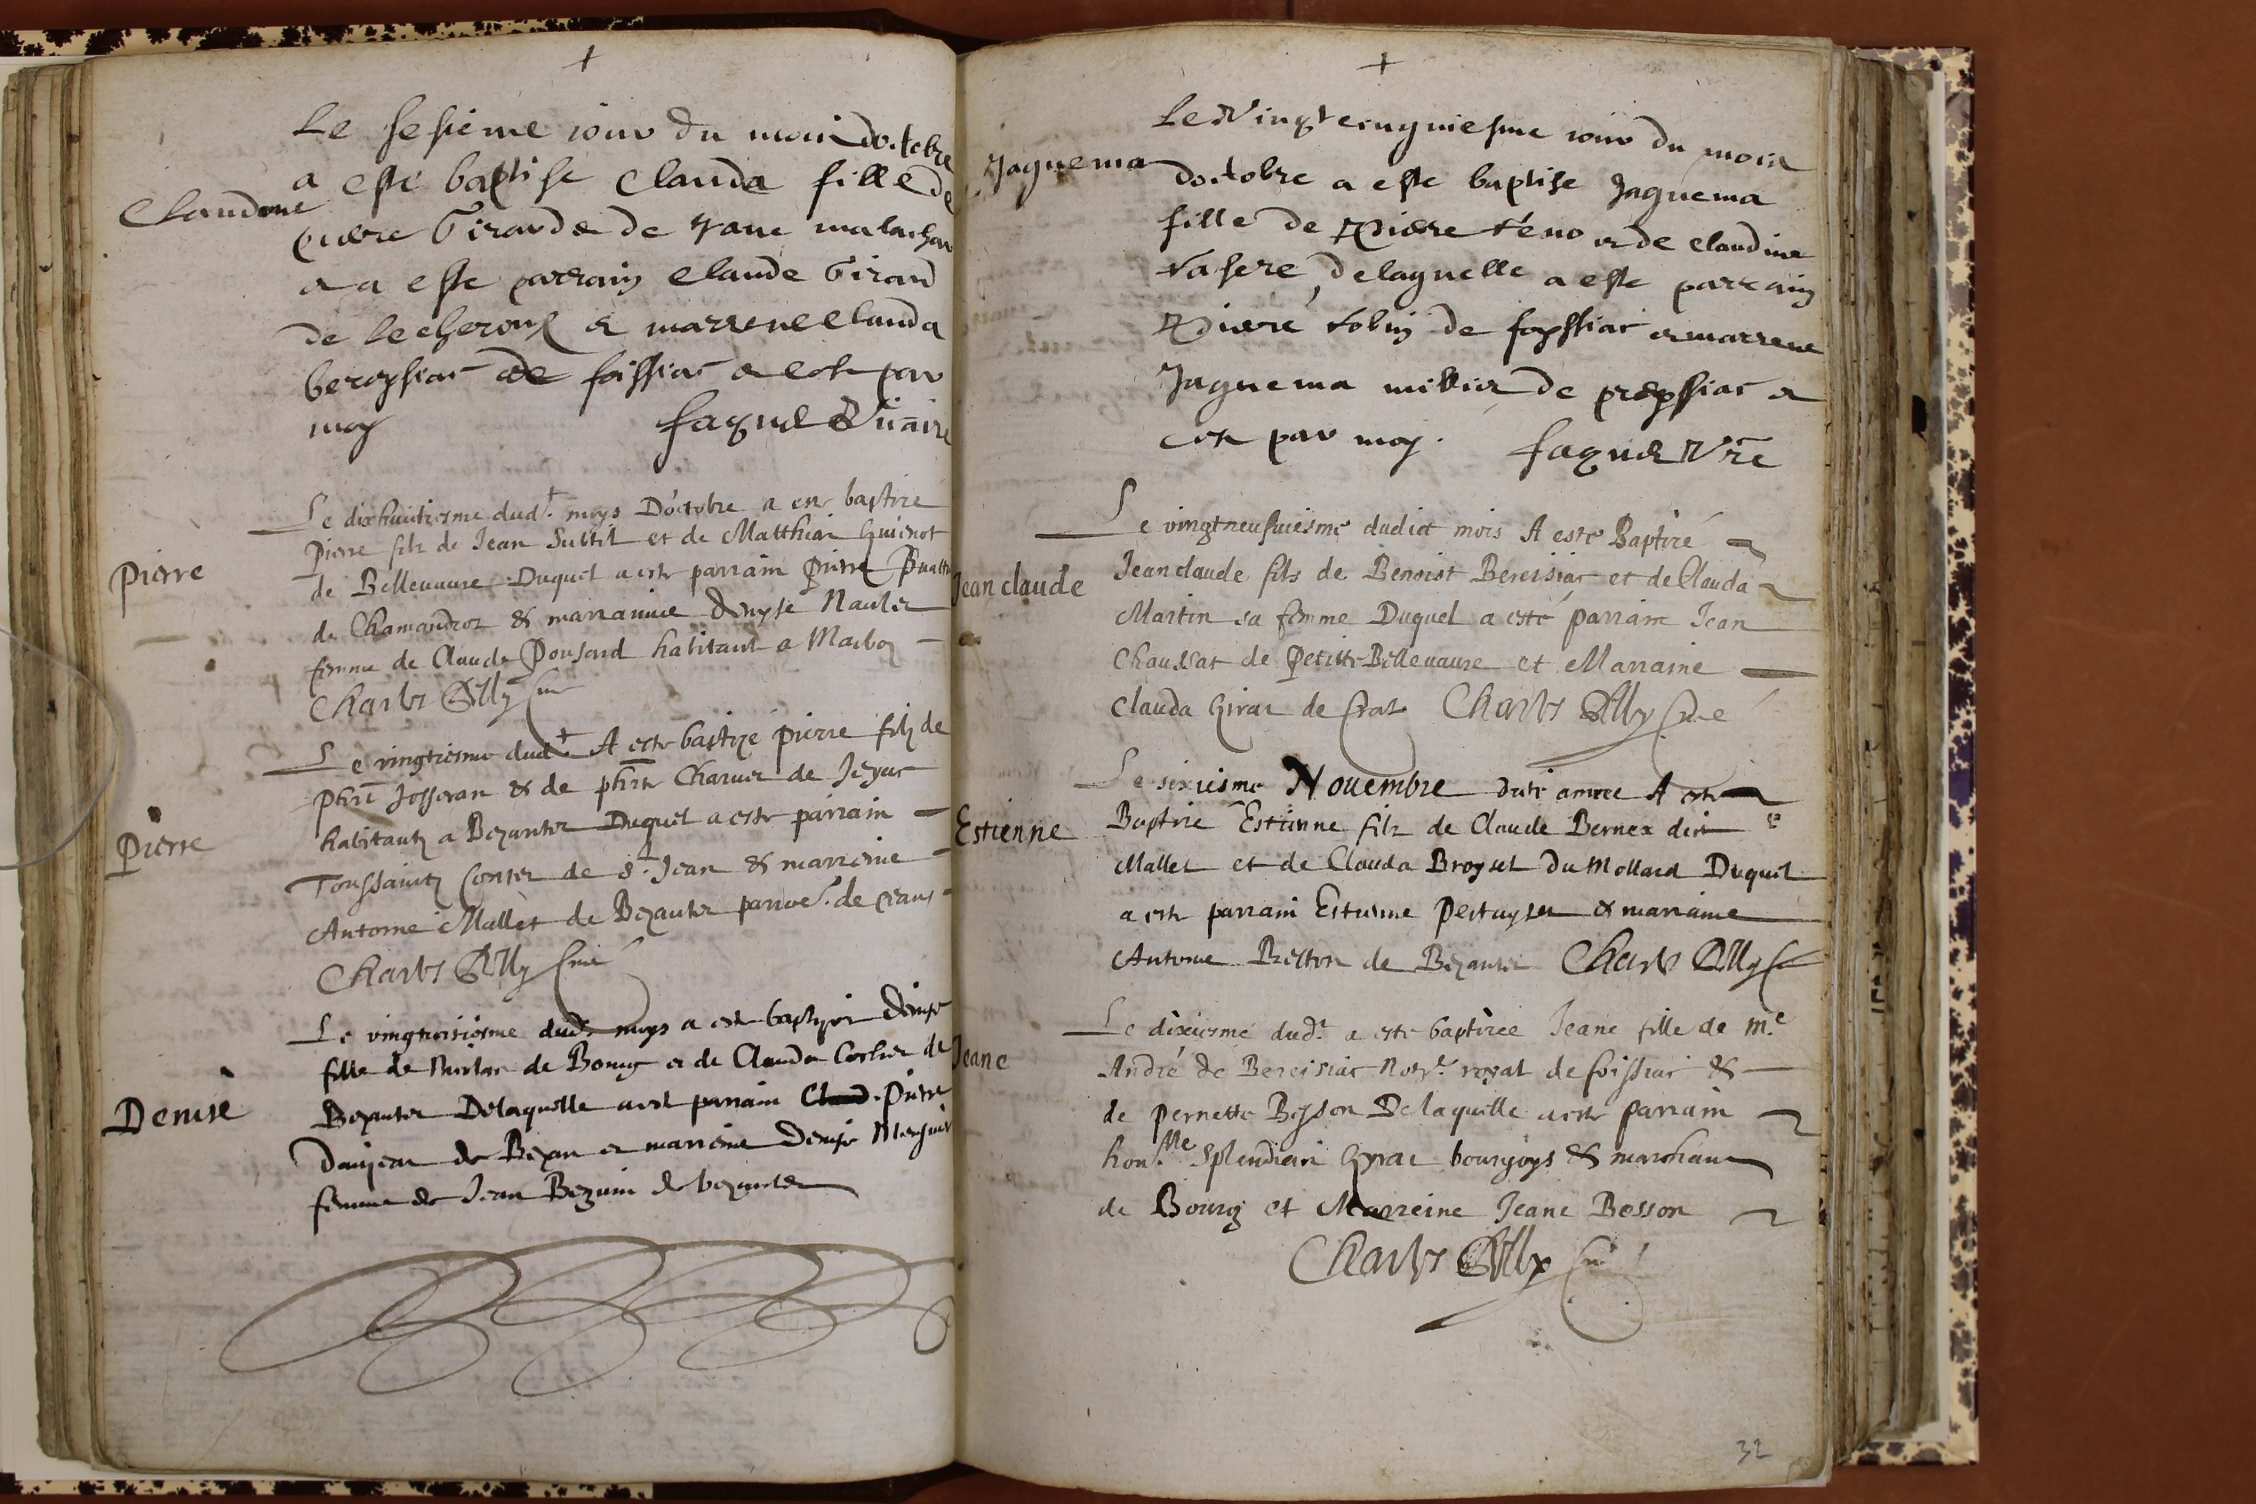 +
Le sesieme iour du mois doctobre
a este baptise Clauda fille de
Claudine
piere Girard & de
& a este parrain Claude Girand
de lecheroux & marrene Clauda
bereysiat de foissiat & est par
moy faque Vicaire
Le dixhuitiesme dud.t moys D'octobre a este baptizé
Pierre filz de Jean Subtil et de Matthiae Guienot
Pierre
de Bellevaure Duquel a este parrain Pierre
de Chamandroz & marraine Denyse
femme de Claude Ponsard habitant a Marboz
Charles Ally Curé
Le vingtiesme dud.t A este baptizé pierre filz de
phert Josseran & de Charuet de Jeyat
habitantz a Bezanter Duquel a este parrain
Pierre
Toussainctz Contet de s.t Jean & marreine
Antoine Mallet de Bezanter parroe. de
Charles Ally Curé
Le vingtroisiesme dud.t moys a este baptyzée Denise
fille de Nicolas de Bourg et de Clauda de
Bezanter Delaquelle a est parrain Claud. Pierre
Denise
Danjean de Bezan et marreine Denise
femme de Jean Bezuin de bezanter
+
Le Vingtcinquiesme iour du mois
Jaquema
doctobre a este baptise Jaquema
fille de Piere & de Claudine
, delaquelle a este parrain
Piere de foyssiat & marrene
Jaquema millier de preyssiat &
est par moy. faque Vre
Le vingtneufuiesme dudict mois A este Baptizé
Jean claude
Jeanclaude fils de Benoist Bereisiat et de Clauda
Martin sa femme Duquel a esté parrain Jean
Chaussat de Petitte Bellevaure et Marraine
Clauda Girat de Crat Charles Ally Curé
Le sixiesme Novembre dite annee A este
Estienne
Baptizé Estienne filz de Claude Bernex dict
Mallet et de Clauda Broyset du Mollard Duquel
a este parrain Estienne Pertuyset & marraine
Antoine Bretton de Bezanter Charles Ally C
Le dixiesme dud.t a este baptizée Jeane fille de M.e
Jeane
André de Bereisiat Not.re royal de foissiat &
de Pernette Besson Delaquelle a este parrain
hon.lle Splendian Gyrat bourgoys & marchant
de Bourg et Marreine Jeane Besson
Charles Ally Curé
32